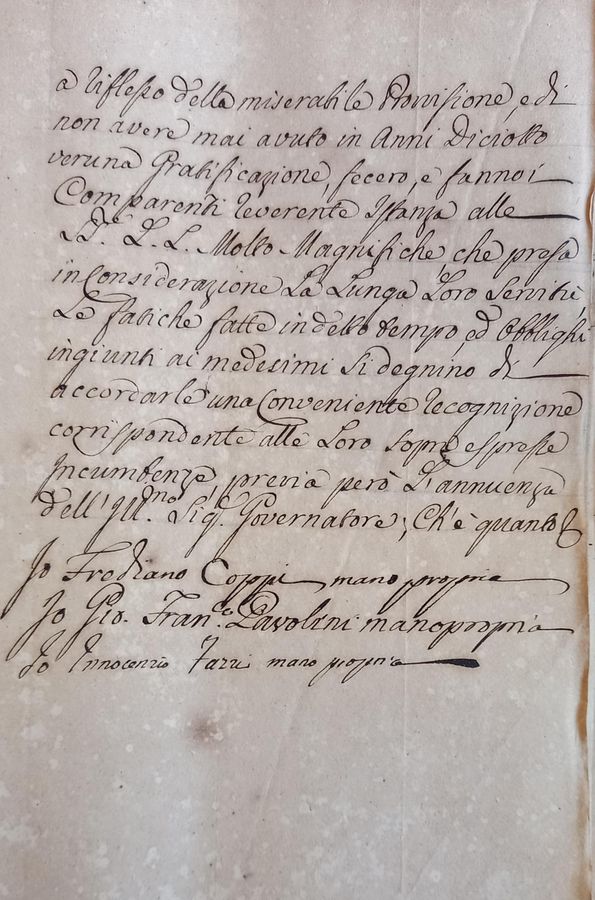 a riflesso della miserabile Provisione, e di
non avere mai avuto in Anni Diciotto
veruna Gratificazione, fecero, e fanno i
Comparenti reverente Istanza alle
L. L. Molto Magnifiche che presa
in Considerazione La Lunga Loro Servitù,
Le fatiche fatte in detto tempo, ed Obblighi
ingiunti ai medesimi si degnino di
accordarle una Conveniente recognizione
corrispondente alle Loro sopra espresse
Incumbenze, previa però L'annuenza
dell' Ill.mo Sig.r Governatore; Ch'è quanto
Io Frediano Coppi mano propria
Io Gio. Fran.co Pavolini mano propria
Io Innocenzio mano propria